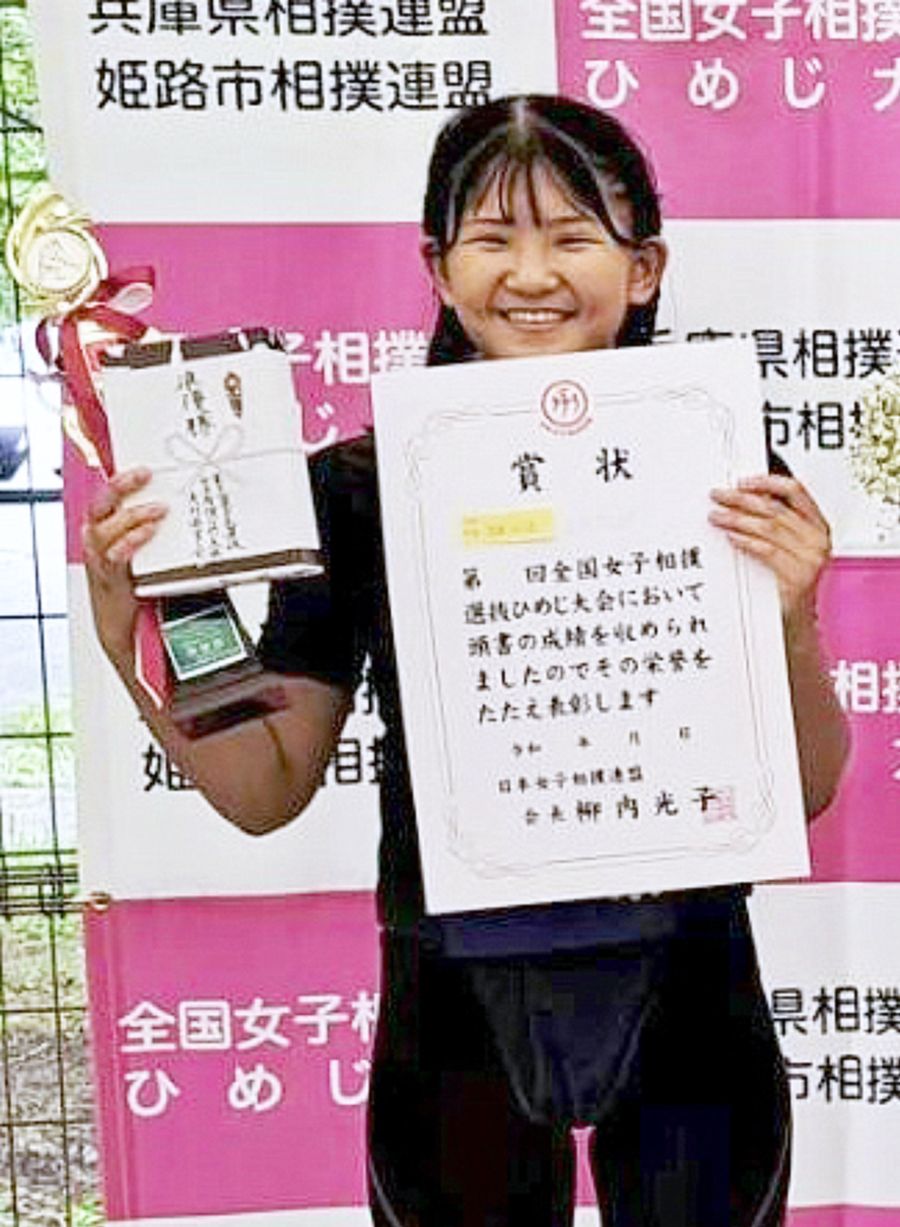 兵庫県相撲連盟
姫路市相撲連盟
全国女子相撲
ひめじ
子相撲
じ
県相撲
市相撲
準優勝
賞状
第 回全国女子相撲
選抜ひめじ大会において
頭書の成績を収められ
ましたのでその栄誉を
たたえ表彰します
令和 年 月 日
日本女子相撲連盟
会長 柳内光子
姫
相
相撲
全国女子相
ひめじ
県相撲
市相撲